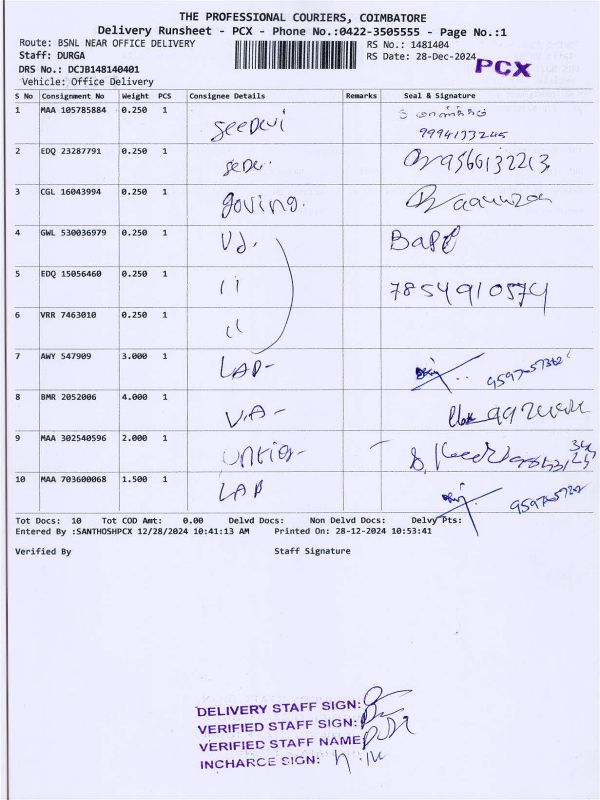 THE PROFESSIONAL COURIERS, COIMBATORE
Delivery Runsheet - PCX - Phone No.:0422-3505555 - Page No.:1
Route: BSNL NEAR OFFICE DELIVERY RS No.: 1481404
Staff: DURGA RS Date: 28-Dec-2024
PCX
DRS No.: DCJB148140401
Vehicle: Office Delivery
S No Consignment No Weight PCS Consignee Details Remarks Seal & Signature
1 MAA 105785884 0.250 1 seeDevi
9994133245
2 EDQ 23287791 0.250 1 9566132213
3 CGL 16043994 0.250 1 goving.
4 GWL 530036979 0.250 1
5 EDQ 15056460 0.250 1 11 7854910574
6 VRR 7463010 0.250 1 11
7 AWY 547909 3.000 1 LAP-
8 BMR 2052006 4.000 1 V.A-
9 MAA 302540596 2.000 1
10 MAA 703600068 1.500 1 LAP
Tot Docs: 10 Tot COD Amt: 0.00 Delvd Docs: Non Delvd Docs: Delvy Pts:
Entered By :SANTHOSHPCX 12/28/2024 10:41:13 AM Printed On: 28-12-2024 10:53:41
Verified By Staff Signature
DELIVERY STAFF SIGN:
VERIFIED STAFF SIGN:
VERIFIED STAFF NAME
INCHARGE SIGN: